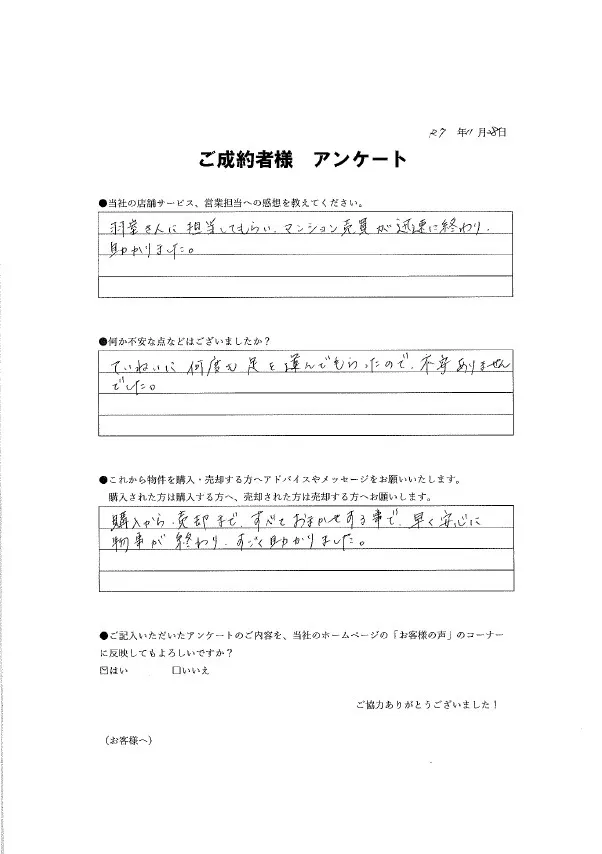 R7 年11月28日
ご成約者様 アンケート
●当社の店舗サービス、営業担当への感想を教えてください。
さんに担当してもらい、マンション売買が迅速に終わり、
助かりました。
●何か不安な点などはございましたか？
ていねいに何度も足を運んでもらったので、不安ありません
でした。
●これから物件を購入・売却する方へアドバイスやメッセージをお願いいたします。
購入された方は購入する方へ、売却された方は売却する方へお願いします。
購入から、売却まで、すべておまかせする事で、早く安心に
物事が終わり、すごく助かりました。
●ご記入いただいたアンケートのご内容を、当社のホームページの「お客様の声」のコーナー
に反映してもよろしいですか？
☑はい □いいえ
ご協力ありがとうございました！
（お客様へ）